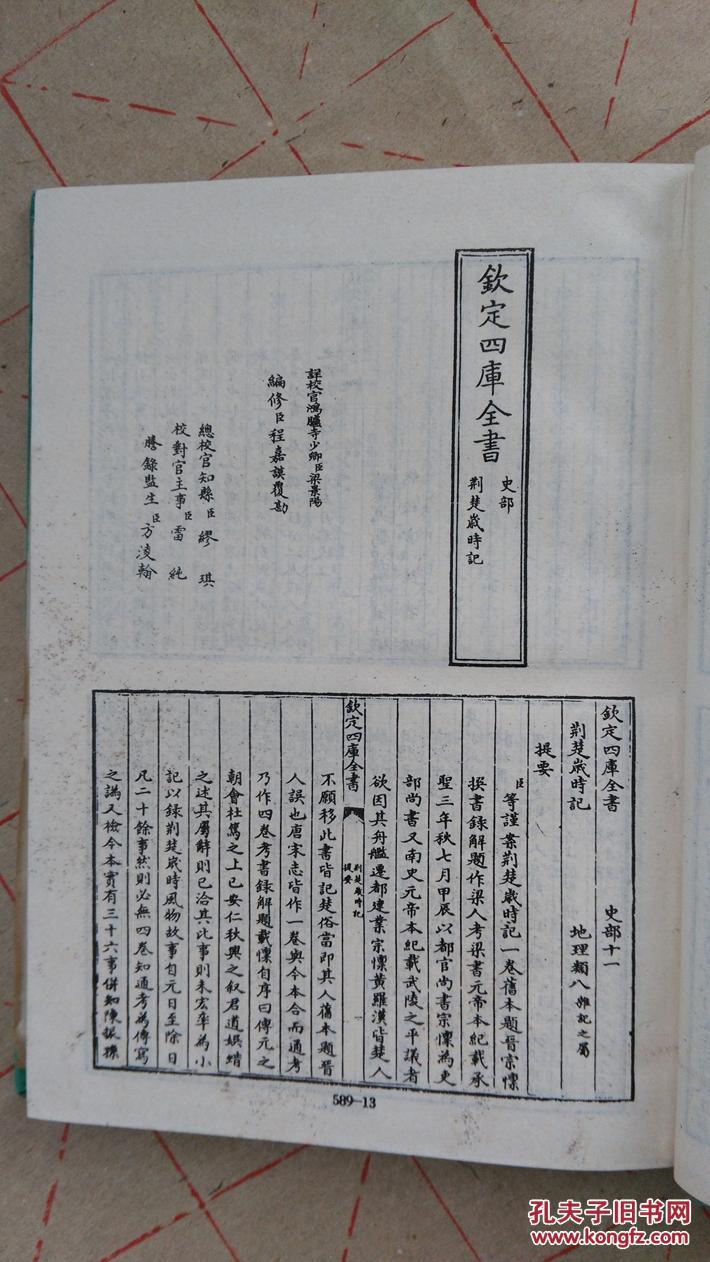 欽定四庫全書
史部
荆楚歲時記
詳校官鴻臚寺少卿臣梁景陽
編修臣程嘉謨覆勘
總校官知縣臣繆琪
校對官主事臣雷純
謄錄監生臣方淩翰
欽定四庫全書 史部十一
荆楚歲時記 地理類八雜記之屬
提要
臣等謹案荆楚歲時記一卷舊本題晉宗懍
撰書録解題作梁人考梁書元帝本紀載承
聖三年秋七月甲辰以都官尚書宗懍為吏
部尚書又南史元帝本紀載武陵之平議者
欲因其舟艦遷都建業宗懍黄羅漢皆楚人
欽定四庫全書 荆楚歲時記 提要 一
不願移此書皆記楚俗當即其人舊本題晉
人誤也唐宋志皆作一卷與今本合而通考
乃作四卷考書録解題載懍自序曰傅元之
朝會杜篤之上巳安仁秋興之叙君道娱蜡
之述其屬辭則已洽其比事則未宏率為小
記以録荆楚歲時風物故事自元日至除日
凡二十餘事然則必無四卷知通考為傳寫
之譌又檢今本實有三十六事併知陳振孫
589-13
孔夫子旧书网
www.kongfz.com